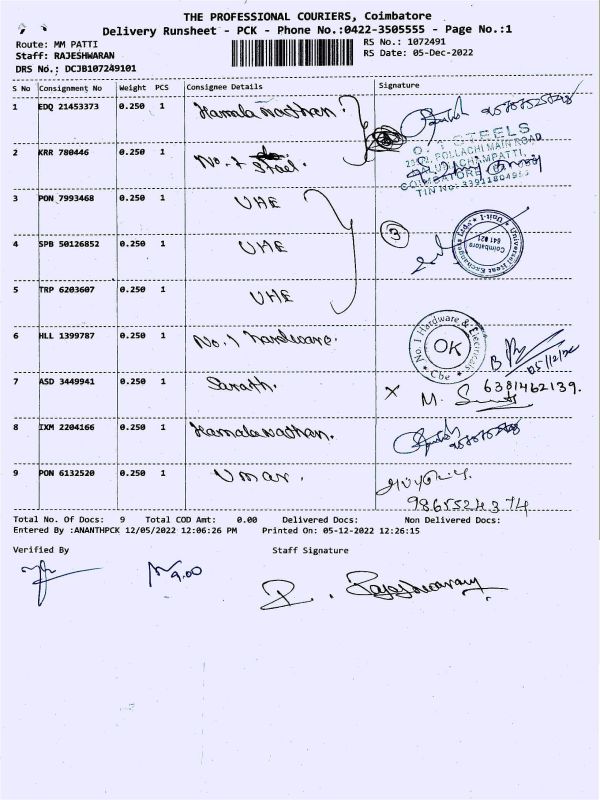 THE PROFESSIONAL COURIERS, Coimbatore
Delivery Runsheet - PCK - Phone No.:0422-3505555 - Page No.:1
Route: MM PATTI
RS No.: 1072491
Staff: RAJESHWARAN
RS Date: 05-Dec-2022
DRS No.: DCJB107249101
S No Consignment No Weight PCS Consignee Details Signature
1 EDQ 21453373 0.250 1 Kamala nathan.
2 KRR 780446 0.250 1 No. 1 Steel.
O. 1 STEELS
POLLACHI MAIN ROAD
COIMBATORE
3 PON 7993468 0.250 1 UHE
3
4 SPB 50126852 0.250 1 UHE
Universal Heat Exchangers Ltd. Unit-I
Coimbatore
641 021
5 TRP 6203607 0.250 1 UHE
6 HLL 1399787 0.250 1 No. 1 hardware.
No. 1 Hardware & Electricals
OK
Cbe
05/12/22
7 ASD 3449941 0.250 1 Sarath. X M.
6381462139.
8 IXM 2204166 0.250 1 Kamalanathan.
9 PON 6132520 0.250 1 Umar.
9865524374
Total No. Of Docs: 9 Total COD Amt: 0.00 Delivered Docs: Non Delivered Docs:
Entered By :ANANTHPCK 12/05/2022 12:06:26 PM Printed On: 05-12-2022 12:26:15
Verified By Staff Signature
9.00
R. Rajeshwaran